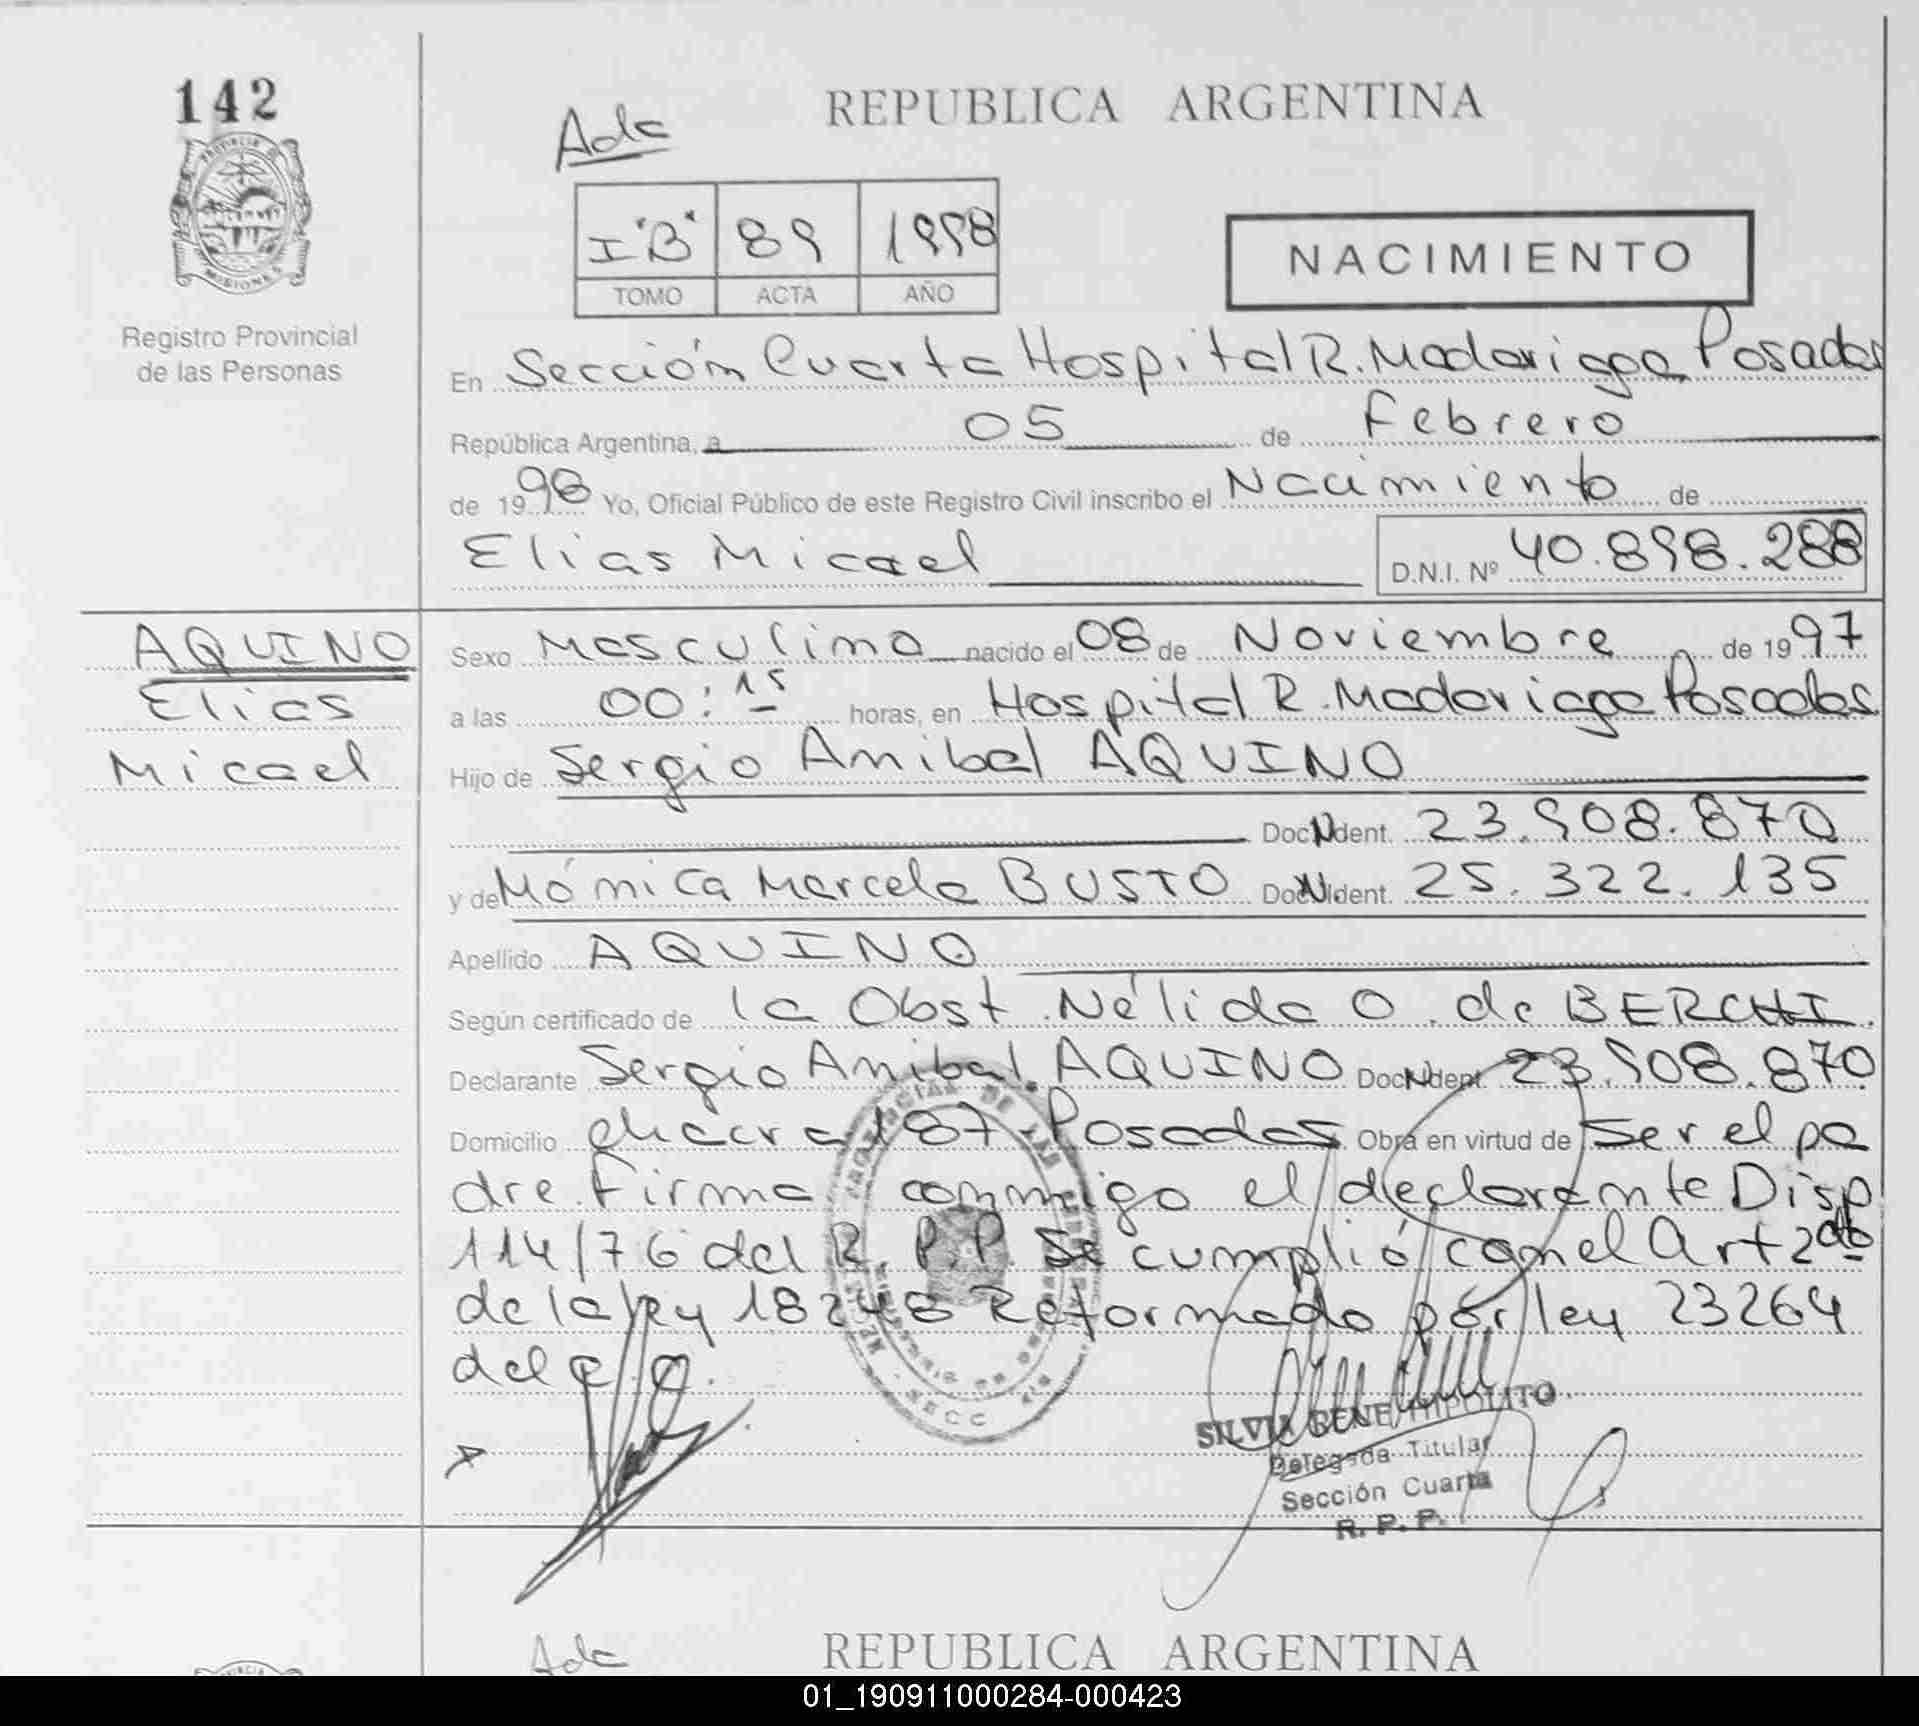 142
Ada
REPUBLICA ARGENTINA
I "B" 89 1998
TOMO ACTA AÑO
NACIMIENTO
PROVINCIA DE MISIONES
Registro Provincial
de las Personas
En Sección Cuarta Hospital R. Madariaga Posadas
República Argentina, a 05 de Febrero
de 1998 Yo, Oficial Público de este Registro Civil inscribo el Nacimiento de
Elias Micael D.N.I. Nº 40.898.288
AQUINO
Elias
Micael
Sexo Masculino nacido el 08 de Noviembre de 1997
a las 00:15 horas, en Hospital R. Madariaga Posadas
Hijo de Sergio Anibal AQUINO
Doc. Ident. 23.908.870
y de Mónica Marcela BUSTO Doc. Ident. 25.322.135
Apellido AQUINO
Según certificado de la Obst. Nélida O. de BERCHI.
Declarante Sergio Anibal AQUINO Doc. Ident. 23.908.870
Domicilio chacra 187 Posadas Obra en virtud de ser el pa
dre. Firma conmigo el declarante Disp
114/76 del R.P.P. Se cumplió con el Art 2do
de la ley 18248 Reformado por ley 23264
del
SILVIA RENE HIPOLITO
Delegada Titular
Sección Cuarta
R. P. P.
Ada
REPUBLICA ARGENTINA
01_190911000284-000423